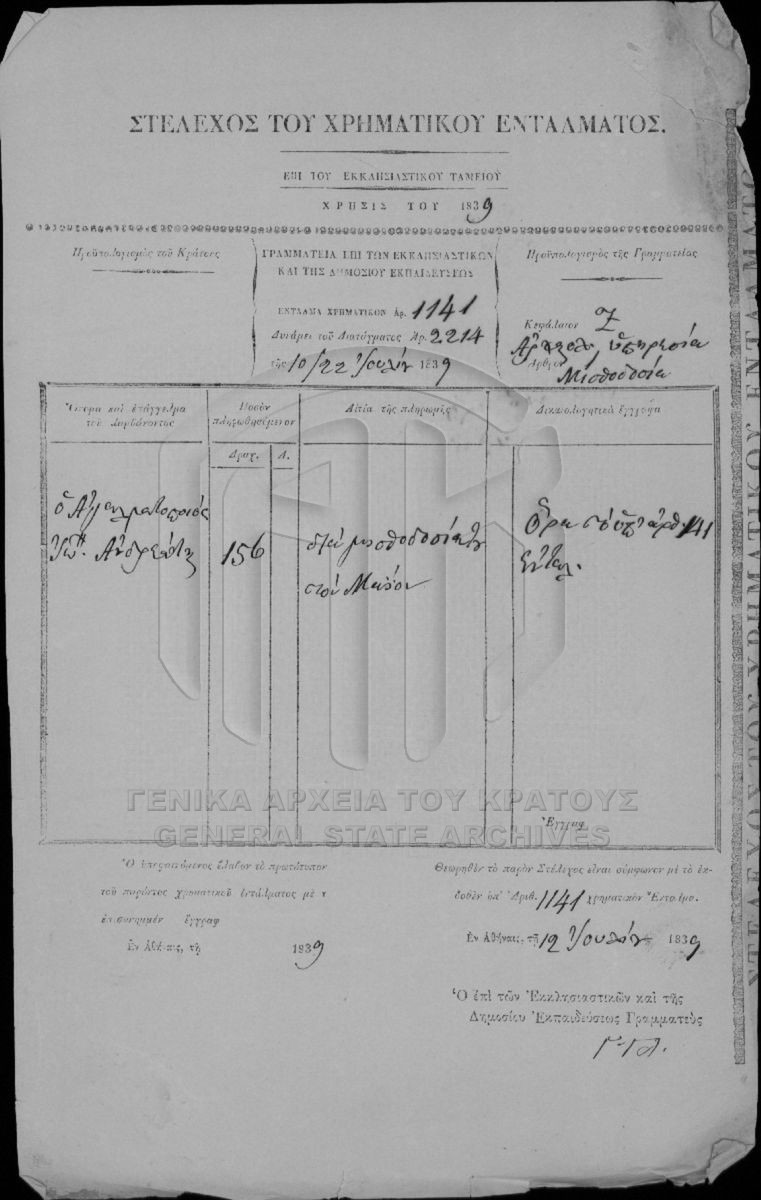 ΣΤΕΛΕΧΟΣ ΤΟΥ ΧΡΗΜΑΤΙΚΟΥ ΕΝΤΑΛΜΑΤΟΣ.
ΕΠΙ ΤΟΥ ΕΚΚΛΗΣΙΑΣΤΙΚΟΥ ΤΑΜΕΙΟΥ
ΧΡΗΣΙΣ ΤΟΥ 1839
Προϋπολογισμὸς τοῦ Κράτους
ΓΡΑΜΜΑΤΕΙΑ ΕΠΙ ΤΩΝ ΕΚΚΛΗΣΙΑΣΤΙΚΩΝ
ΚΑΙ ΤΗΣ ΔΗΜΟΣΙΟΥ ΕΚΠΑΙΔΕΥΣΕΩΣ
ΕΝΤΑΛΜΑ ΧΡΗΜΑΤΙΚΟΝ Ἀρ. 1141
Δυνάμει τοῦ Διατάγματος Ἀρ. 2214
τῆς 10/22 Ἰουλίου 1839
Προϋπολογισμὸς τῆς Γραμματείας
Κεφάλαιον Ζ
Ἀρχαιολ. ὑπηρεσία
Ἄρθρον
Μισθοδοσία
Ὄνομα καὶ ἐπάγγελμα
τοῦ λαμβάνοντος
Ποσὸν
πληρωθησόμενον
Δραχ. Λ.
Αἰτία τῆς πληρωμῆς
Δικαιολογητικὰ ἔγγραφα
ὁ Ἀγαλματοποιὸς
Ἰω. Ἀνδρεώλης
156
διὰ μισθοδοσίαν
τὸν Μάϊον
Ὅρα 1141
Ἐνταλ.
Ἔγγραφ.
Ὁ ὑποφαινόμενος ἔλαβον τὸ πρωτότυπον
τοῦ παρόντος χρηματικοῦ ἐντάλματος μὲ
ἐπισυνημμέν ἔγγραφ
Ἐν Ἀθήναις, τῇ 1839
Θεωρηθὲν τὸ παρὸν Στέλεχος εἶναι σύμφωνον μὲ τὸ ἐκ-
δοθὲν ὑπ' Ἀριθ. 1141 χρηματικὸν Ἔνταλμα.
Ἐν Ἀθήναις, τῇ 12 Ἰουλίου 1839
Ὁ ἐπὶ τῶν Ἐκκλησιαστικῶν καὶ τῆς
Δημοσίου Ἐκπαιδεύσεως Γραμματεὺς
ΓΕΝΙΚΑ ΑΡΧΕΙΑ ΤΟΥ ΚΡΑΤΟΥΣ
GENERAL STATE ARCHIVES
ΣΤΕΛΕΧΟΣ ΤΟΥ ΧΡΗΜΑΤΙΚΟΥ ΕΝΤΑΛΜΑΤΟΣ